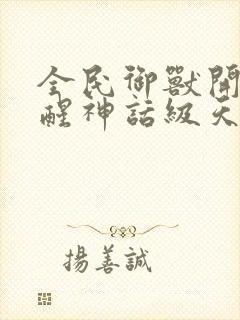 全民御獸開
醒神話級天
揚善誠